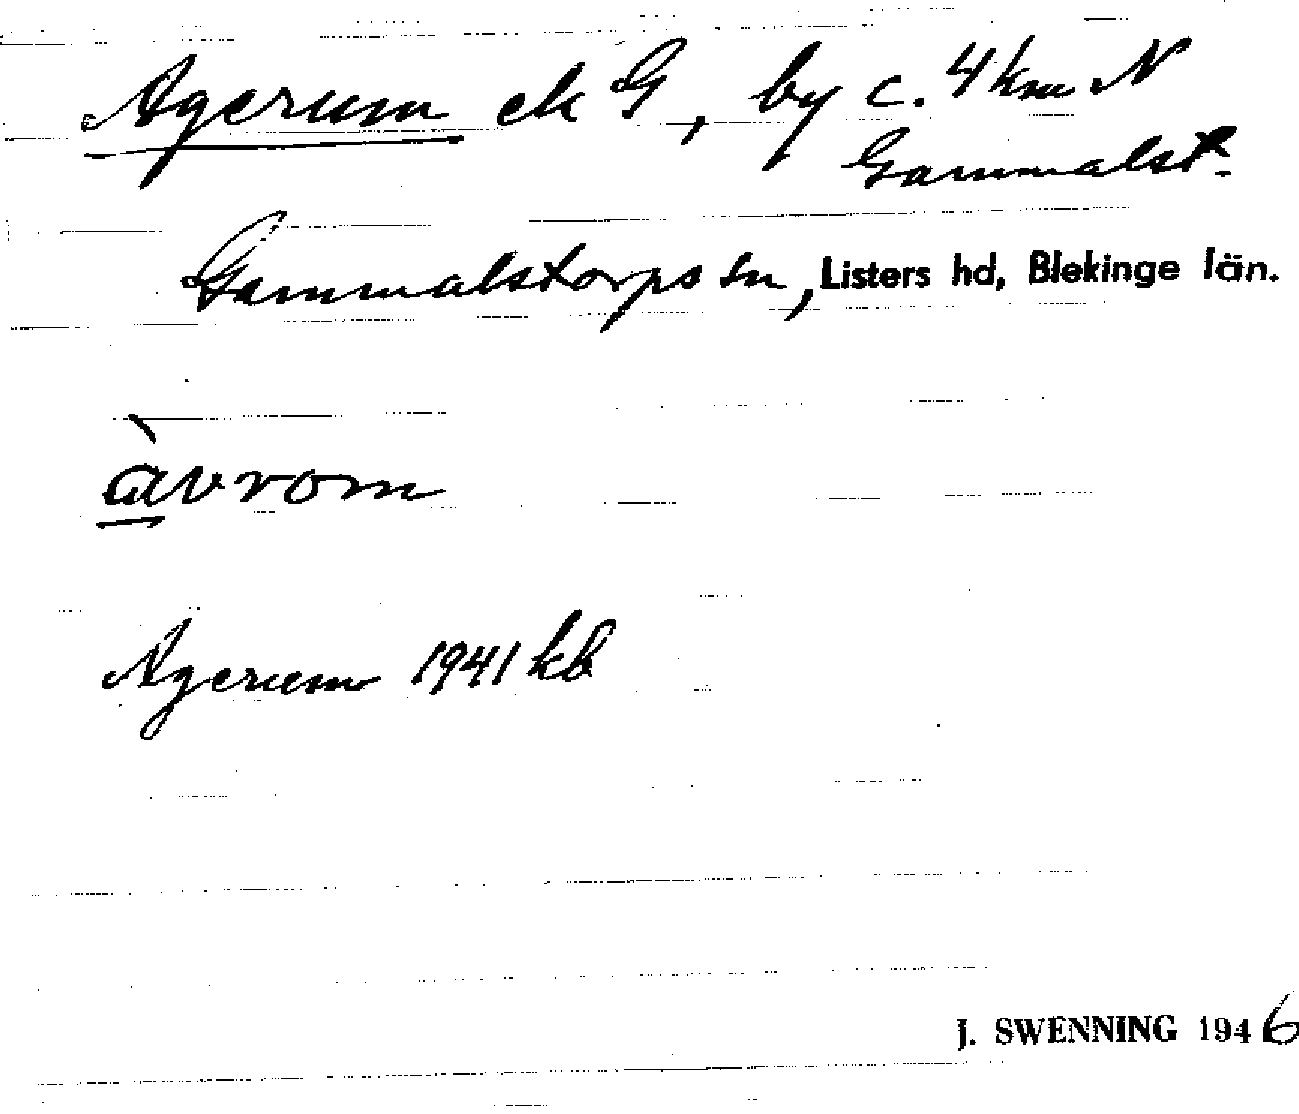 Agerum ek G, by c. 4 km N
Gammalst.
Gammalstorps sn, Listers hd, Blekinge län.
àvrom
Agerum 1941 kb
J. SWENNING 1946